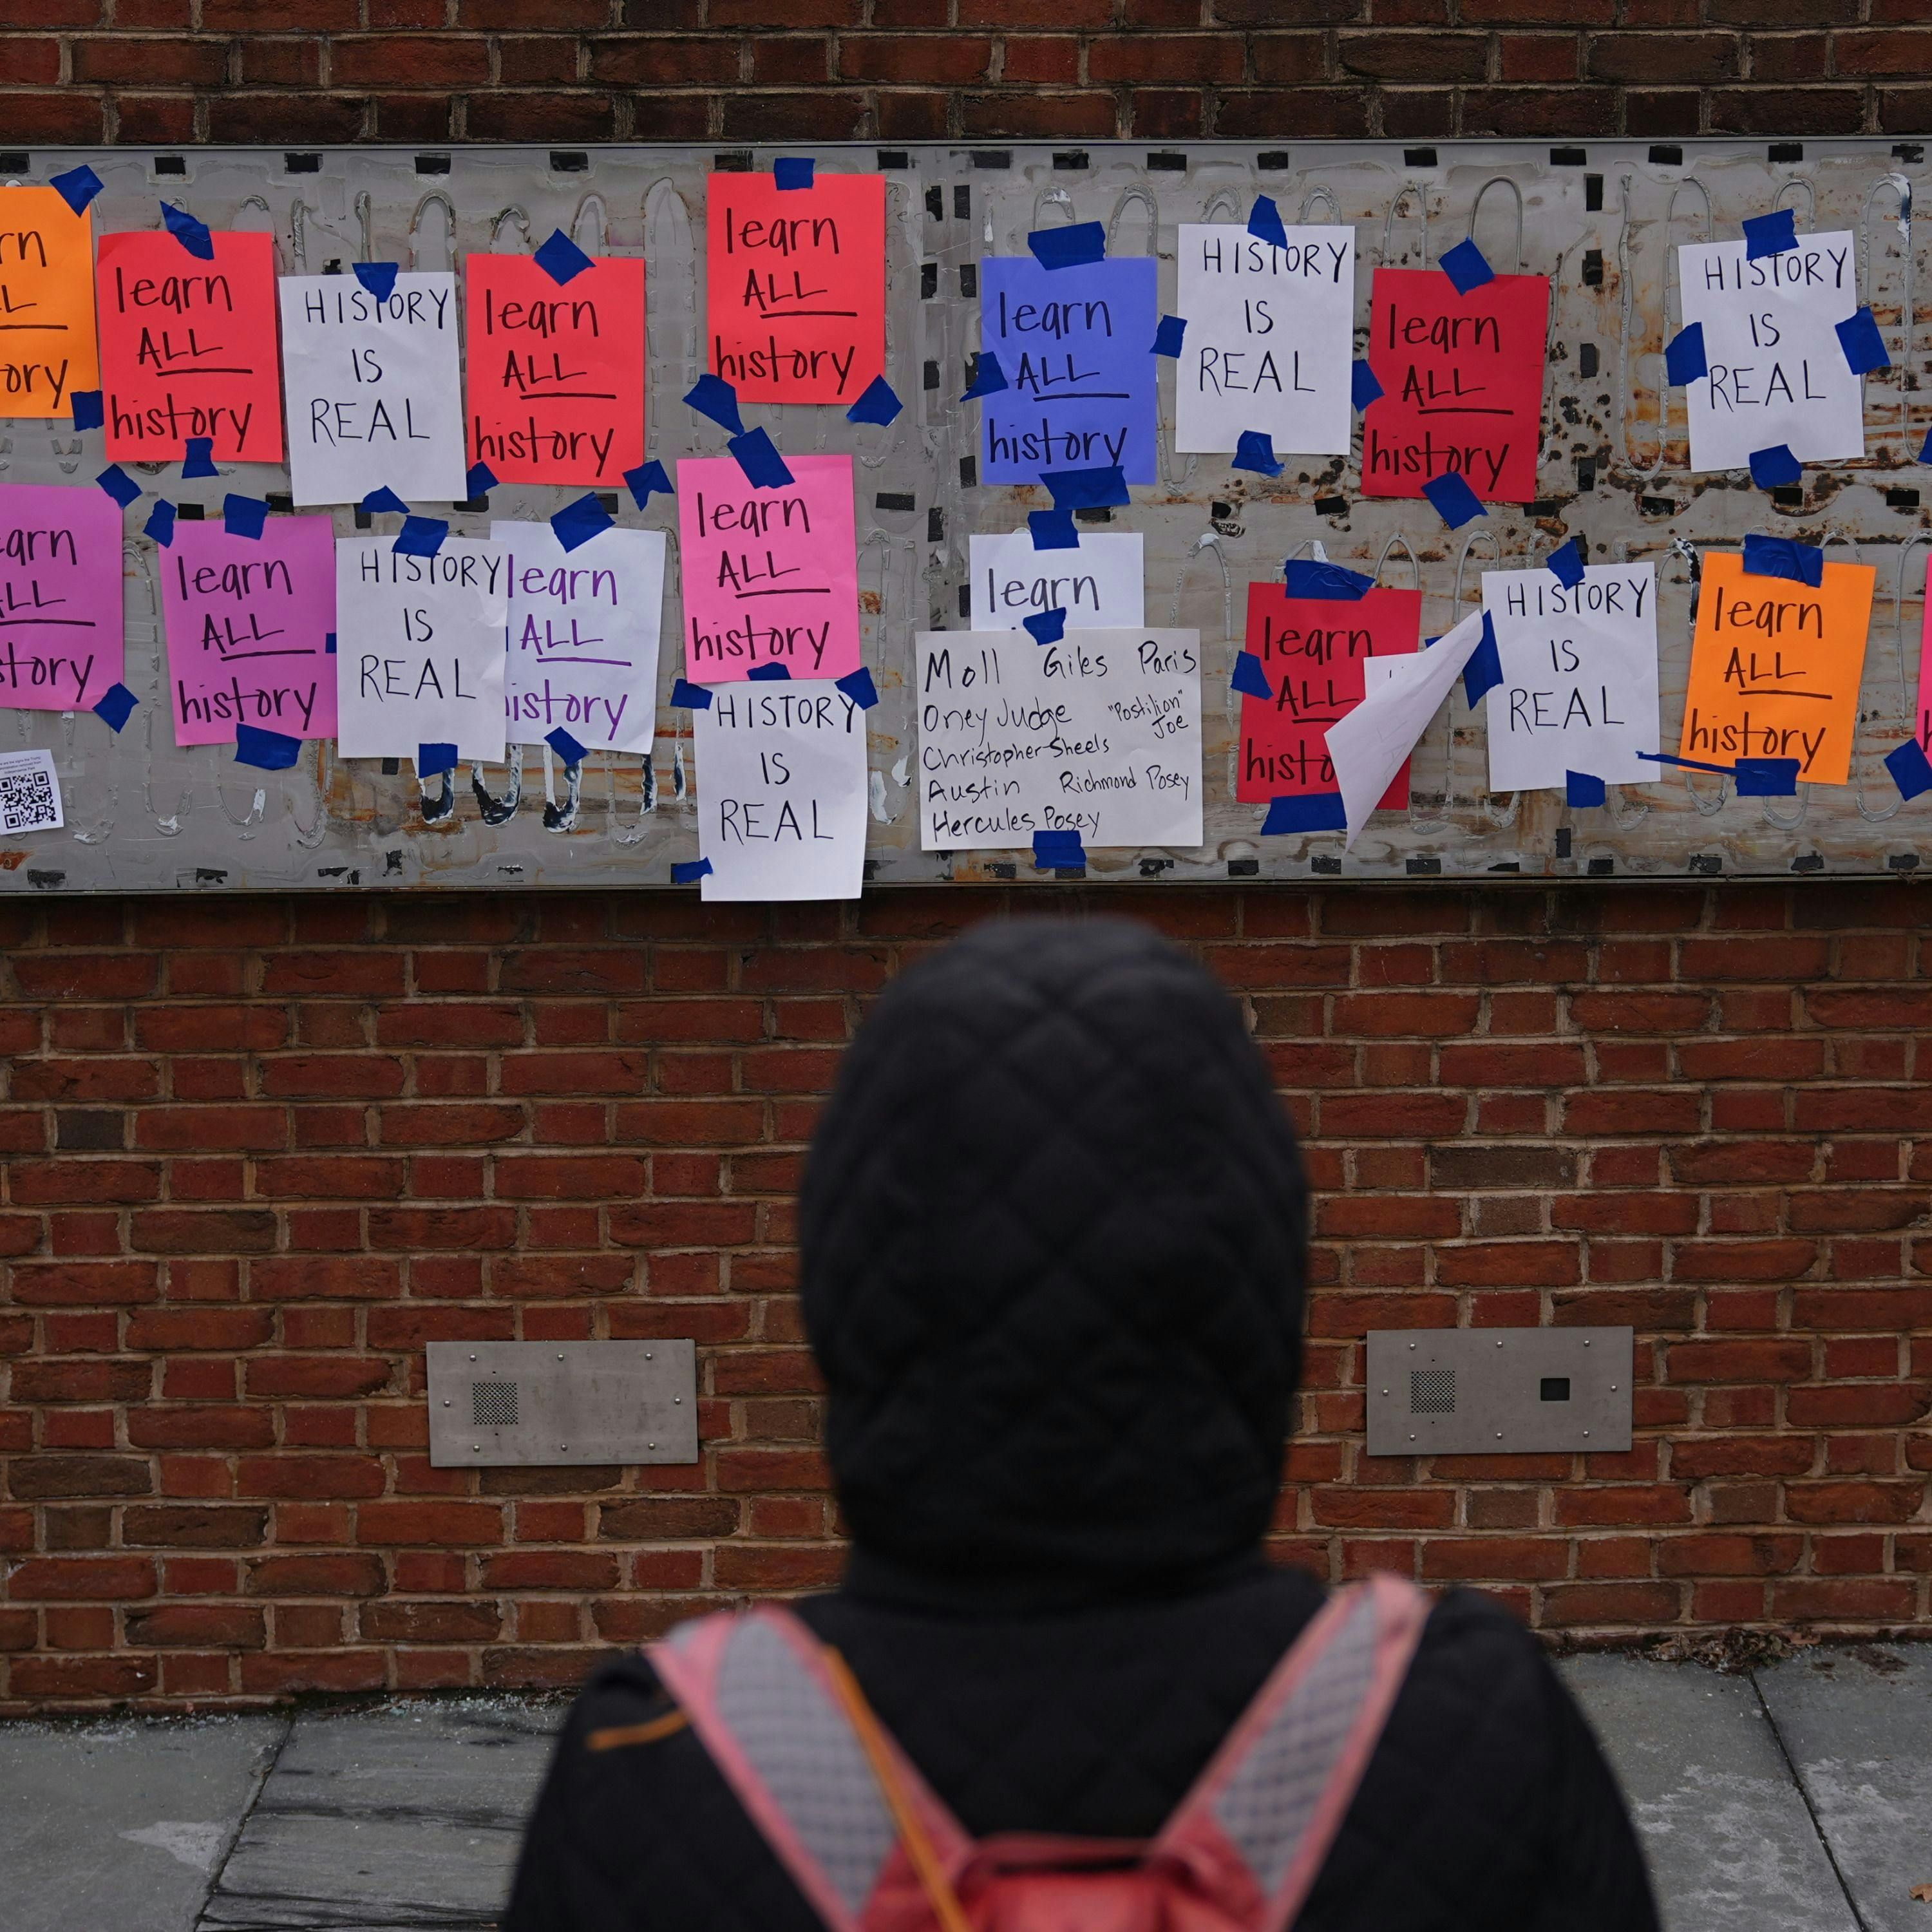 rn
LL
ory
learn
ALL
history
HISTORY
IS
REAL
learn
ALL
history
learn
ALL
history
learn
ALL
history
HISTORY
IS
REAL
learn
ALL
history
HISTORY
IS
REAL
earn
ALL
story
learn
ALL
history
HISTORY
IS
REAL
learn
ALL
history
learn
ALL
history
HISTORY
IS
REAL
learn
Moll Giles Paris
Oney Judge "Postilion" Joe
Christopher Sheels
Austin Richmond Posey
Hercules Posey
learn
ALL
histo
HISTORY
IS
REAL
learn
ALL
history